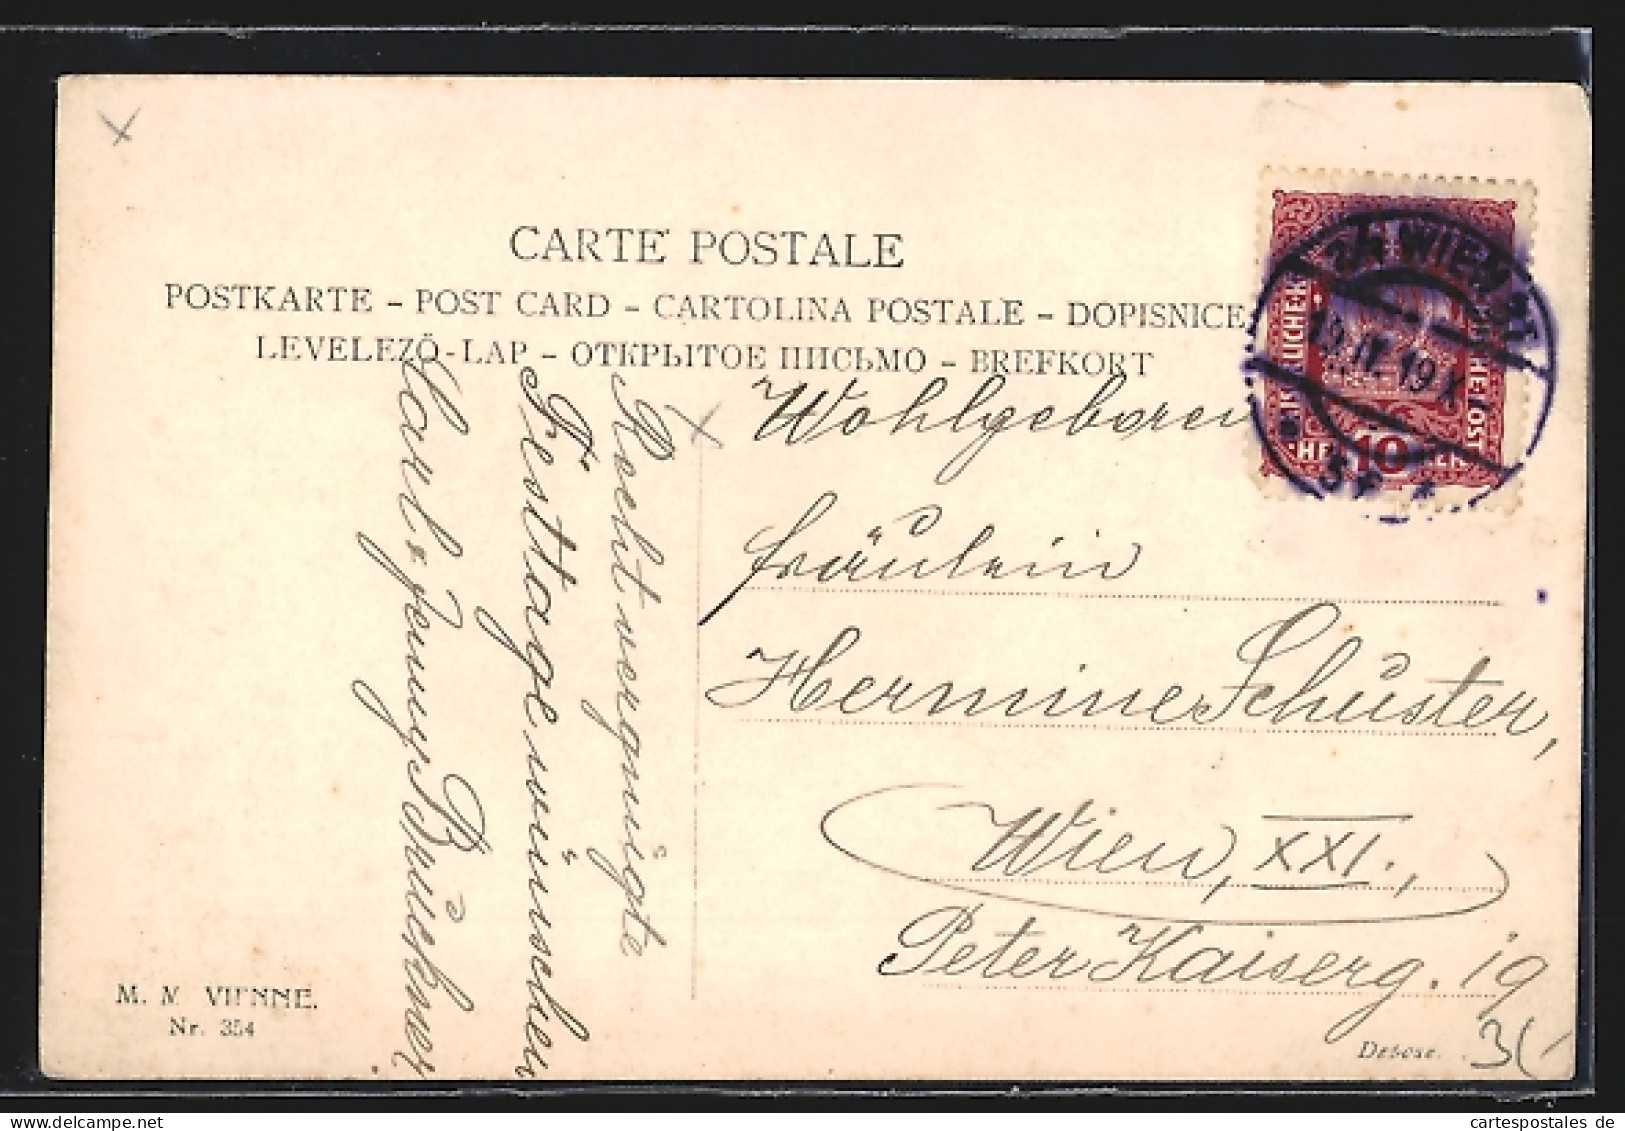 CARTE POSTALE
POSTKARTE – POST CARD – CARTOLINA POSTALE – DOPISNICE
LEVELEZŐ-LAP – ОТКРЫТОЕ ПИСЬМО – BREFKORT
WIEN
19.IV.19 X
10
Recht vergnügte
Festtage wünschen
Carl & Jenny
Wohlgeboren
Fräulein
Hermine Schuster,
Wien, XXI.,
Peter Kaiserg. 19
M. M. VIENNE.
Nr. 354
Dépose.
cartespostales de